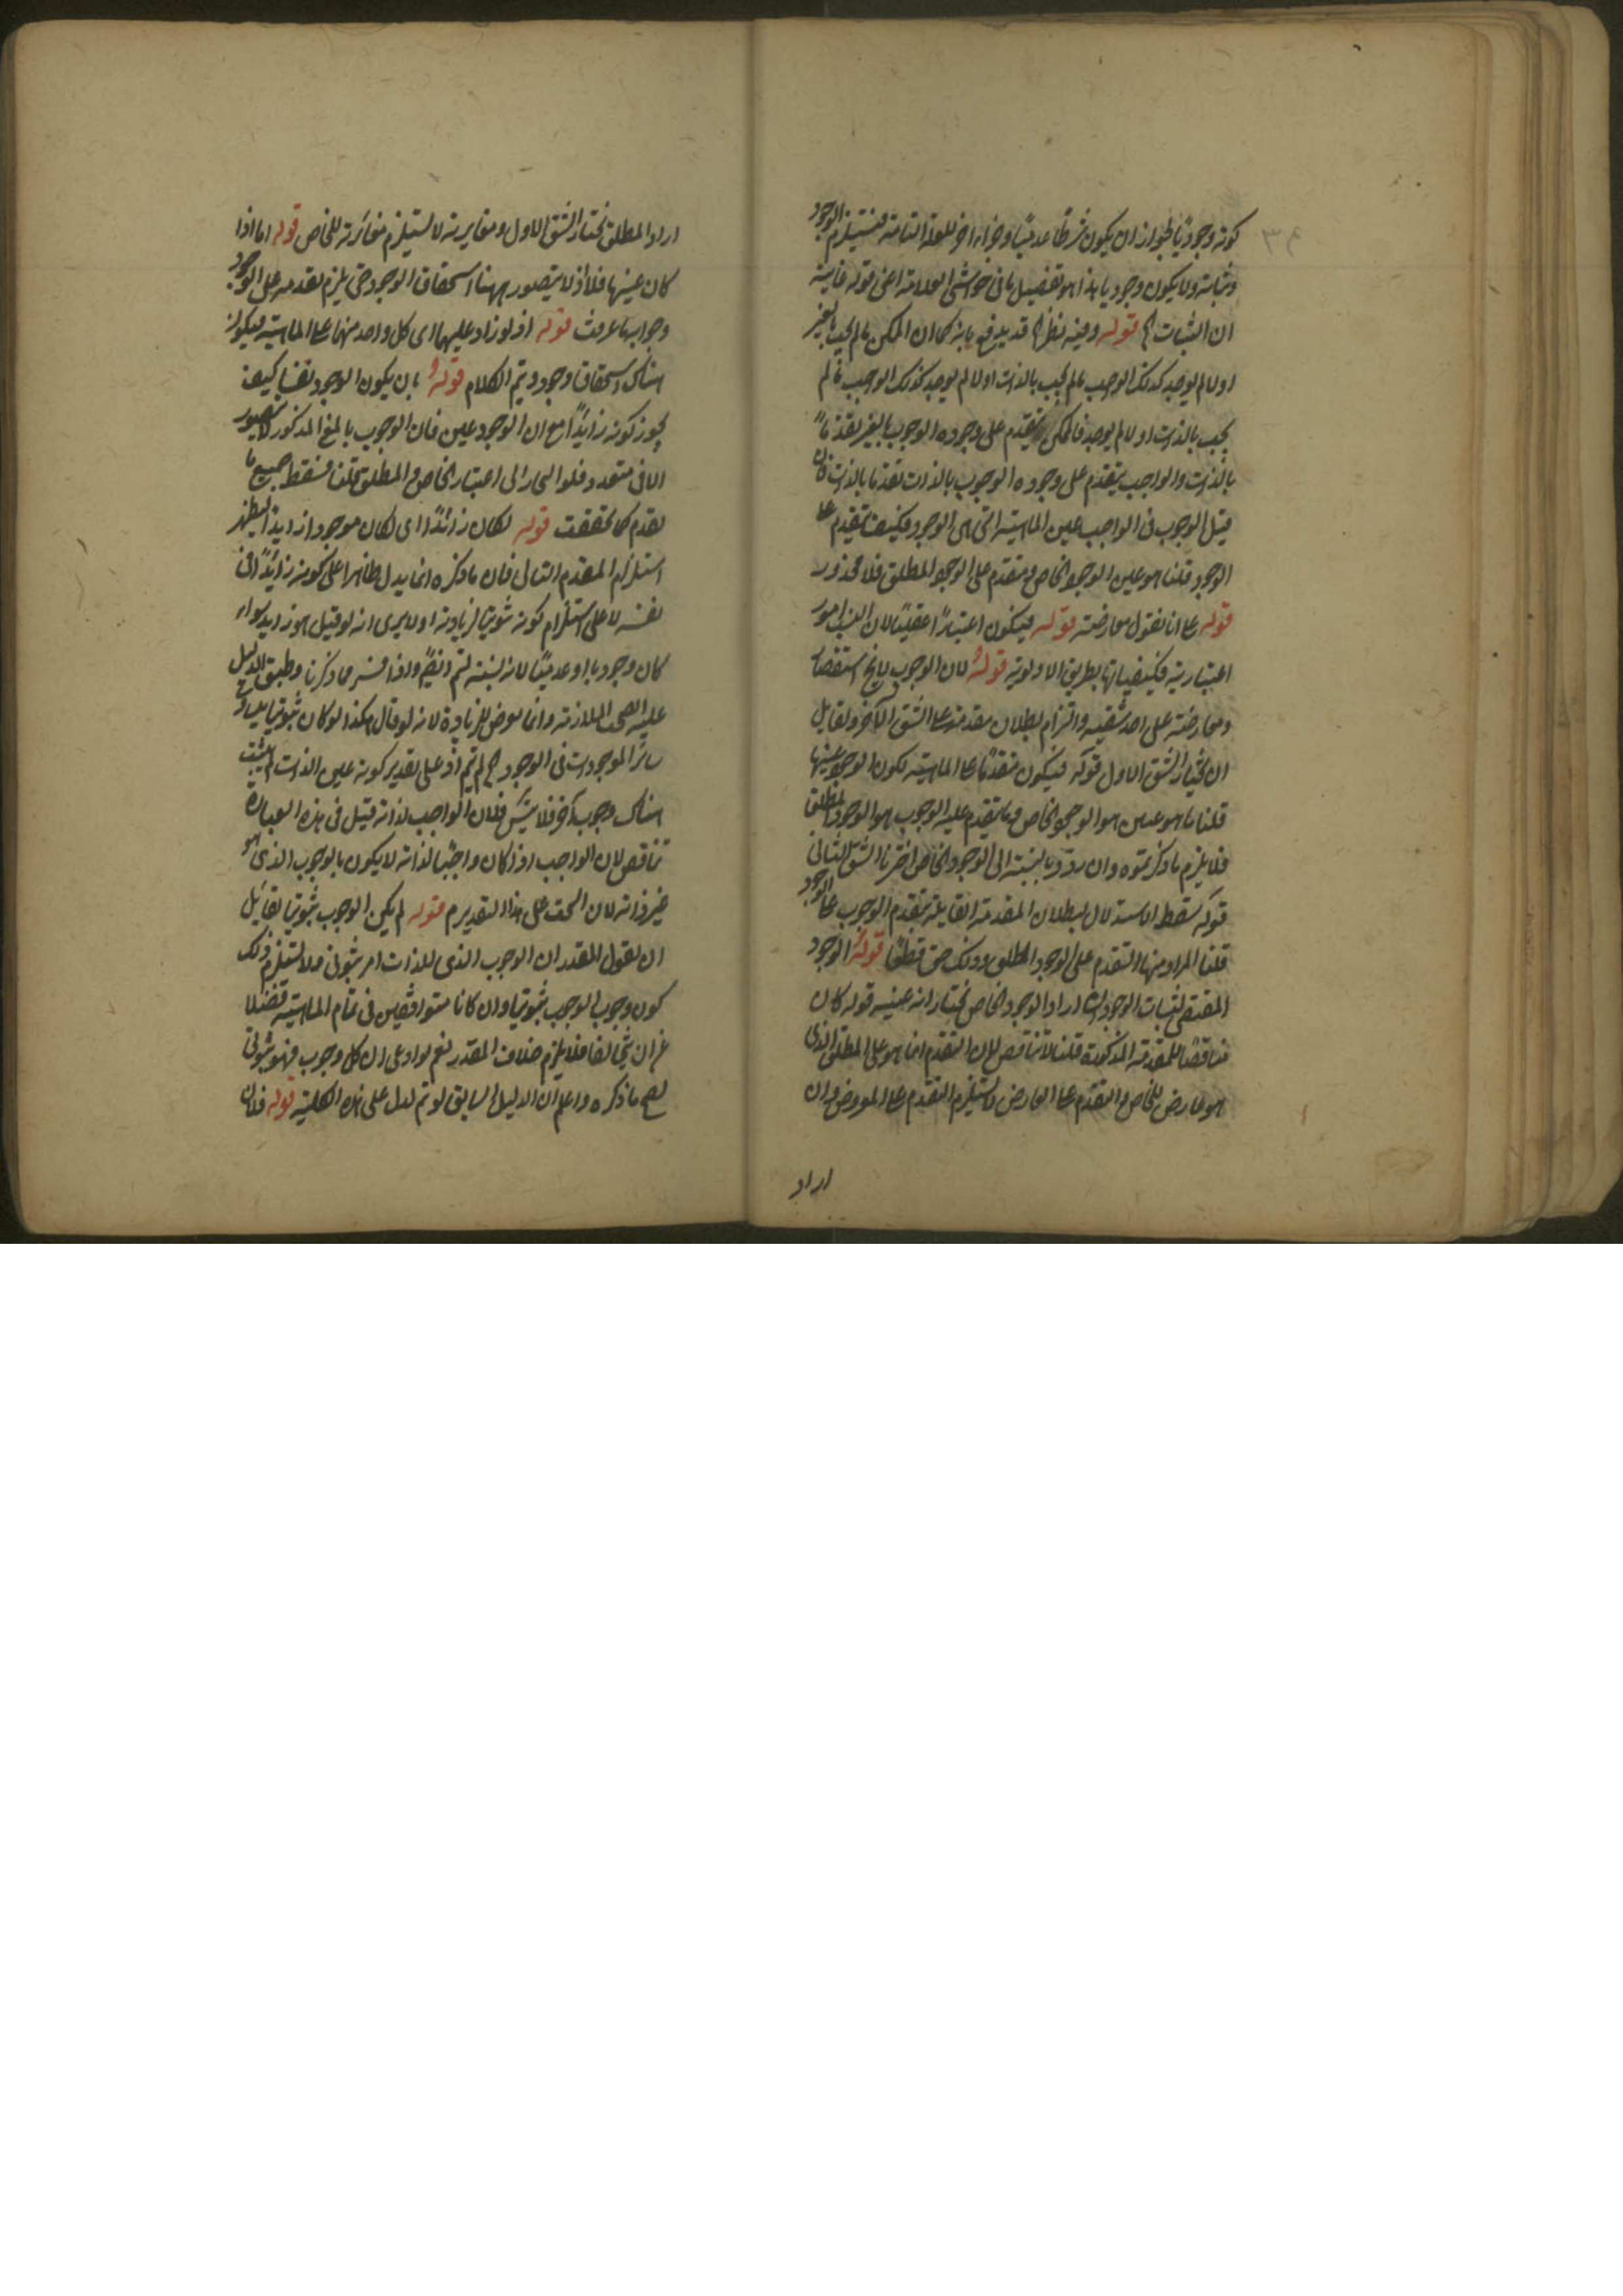 كونه وجوديا لجواز ان يكون شرطا عدميا وجزاء اخر للعلة التامة فيستلزم الوجود
وثباته ولا يكون وجوديا هذا هو تفصيل ما فى حواشى العلامة اعنى قوله غايته
ان الثبات الخ قوله وفيه نظر الخ قد يدفع بانه كما ان الممكن ما لم يجب بالغير
اولا لم يوجد كذلك الوجب ما لم يجب بالذات اولا لم يوجد كذلك الواجب ما لم
يجب بالذات اولا لم يوجد فالممكن يتقدم على وجوده الوجوب بالغير تقدما
بالذات والواجب يتقدم على وجوده الوجوب بالذات تقدما بالذات فان
قيل الوجوب فى الواجب عين الماهية التى هى الوجود فكيف يتقدم على
الوجود قلنا هو عين الوجود الخاص ومتقدم على الوجود المطلق فلا محذور
قوله على انا نقول معارضة قوله فيكون اعتبارا عقليا لان النسب امور
اعتبارية فكيفياتها بطريق الاولوية قوله لان الوجوب بالخ
ومعارضة على احد شقيه والتزام بطلان مقدمة على الشق الآخر ولقايل
ان يختار الشق الاول قوله فيكون متقدما على الماهية لكون الوجود عينها
قلنا ما هو عين هو الوجود الخاص وما يتقدم عليه الوجوب هو الوجود المطلق
فلا يلزم ما ذكرتموه وان ردد بالنسبة الى الوجود الخاص اخترنا الشق الثانى
قوله سقط الاستدلال لبطلان المقدمة القايلة بتقدم الوجوب على الوجود
قلنا المراد منها التقدم على الوجود المطلق وذلك حق قطعا قوله الوجود
المقتضى لثبات الوجود اراد الوجود الخاص نختار انه عينه قوله كان
مناقضا للمقدمة المذكورة قلنا لا تناقض لان التقدم انما هو على المطلق الذى
هو عارض للخاص والتقدم على العارض لا يستلزم التقدم على المعروض وان
اراد
اراد المطلق نختار الشق الاول ومغايرته لا يستلزم مغايرته للخاص قوله اما اذا
كان عينها فلا اذ لا يتصور ههنا استحقاق الوجود حتى يلزم تقدمه على الوجود
وجوابه ما عرفت قوله اذ لو زاد عليها اى كل واحد منهما على الماهية فيكون
هناك استحقاق وجود ويتم الكلام قوله بان يكون الوجود نفسا كيف
يجوز كونه زايدا مع ان الوجود عين فان الوجوب بالمعنى المذكور لا يتصور
الا فى متعدد فلو اشار الى اعتبار الخاص والمطلق تخلفا فسقط جميع ما
تقدم كما تحققت قوله لكان زائدا اى لكان موجودا زايدا ليظهر
استلزام المقدم التالى فان ما ذكره انما يدل ظاهرا على كونه زائدا فى
نفسه لا على استلزام كونه ثبوتيا لزيادته اولا يرى انه لو قيل هو زايد سواء
كان وجوديا او عدميا لانه نسبة لتم وايضا واذا فسر بما ذكرنا وطبق الدليل
عليه اتضحت الملازمة وانما تعرض للزيادة لانه لو قال هكذا لو كان ثبوتيا
سائر الموجودات فى الوجود الخ لم يتم اذ على تقدير كونه عين الذات لم يثبت
هناك وجوب آخر فلا يتسلسل فلان الواجب لذاته قيل فى هذه العبارة
تناقض لان الواجب اذا كان واجبا لذاته لا يكون بالوجوب الذى هو
غير ذاته لان البحث على هذا التقدير م قوله لم يكن الوجوب ثبوتيا لقايل
ان يقول المقدر ان الوجوب الذى للذات امر ثبوتى ولا يستلزم ذلك
كون وجوب الوجوب ثبوتيا وان كانا متوافقين فى تمام الماهية فضلا
عن ان يتخالفا فلا يلزم خلاف المقدر نعم لو ادعى ان كل وجوب فهو ثبوتى
لصح ما ذكره واعلم ان الدليل السابق لو تم لدل على هذه الكلية قوله فلان